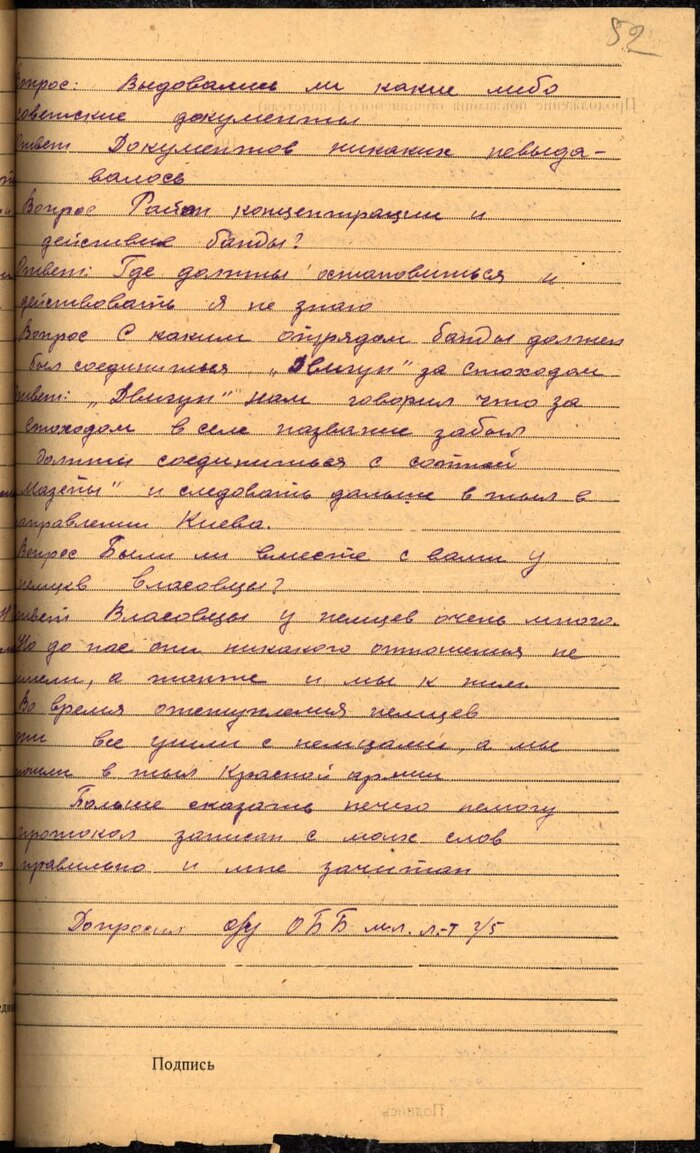 52
Вопрос: Выдовались ли какие либо
советские документы
Ответ Документов никаких невыда-
валось
Вопрос Район концентрации и
действие банды?
Ответ: Где должны остановиться и
действовать я не знаю
Вопрос С каким отрядом банды должен
был соединиться „Двигун" за Стоходом
Ответ: „Двигун" нам говорил что за
Стоходом в селе название забыл
должны соединиться с сотней
Мазепы" и следовать дальше в тыл в
направлении Киева.
Вопрос Были ли вместе с вами у
немцев власовцы?
Ответ Власовцы у немцев очень много.
Но до нас они никакого отношения не
имели, а также и мы к ним.
Во время отступления немцев
они все ушли с немцами, а мы
пошли в тыл Красной армии
Больше сказать нечего немогу
протокол записан с моих слов
правильно и мне зачитан
Допросил о/у ОББ мл. л-т г/б
Подпись